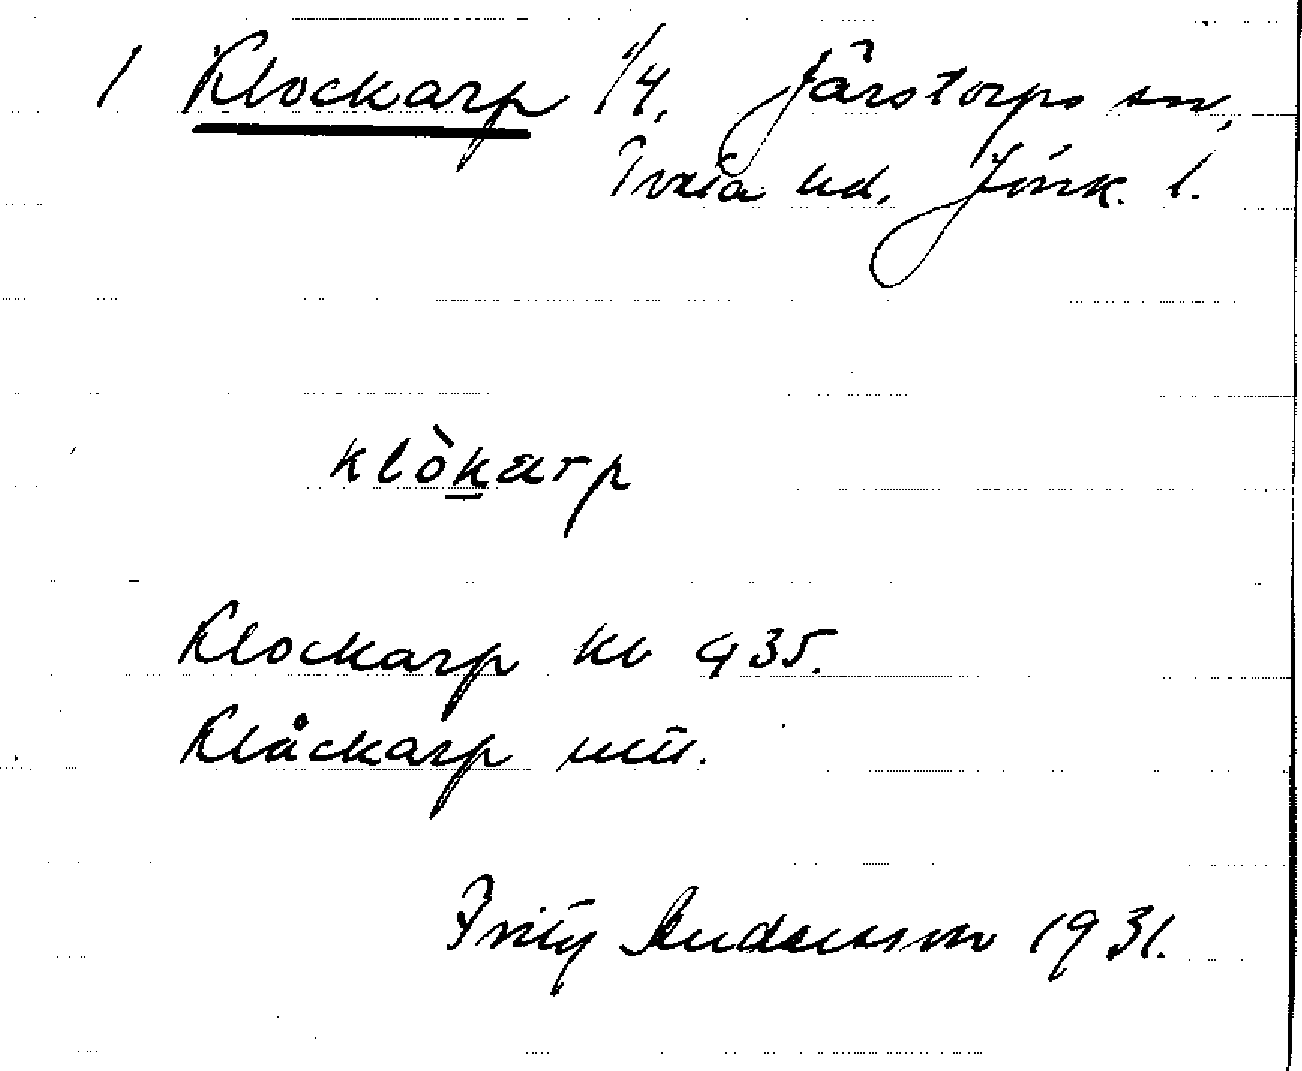 1 Klockarp 1/4. Järstorps sn,
Tveta hd. Jönk. l.
klòkarp
Klockarp kb 935.
Klåckarp
Fritz Andersson 1931.